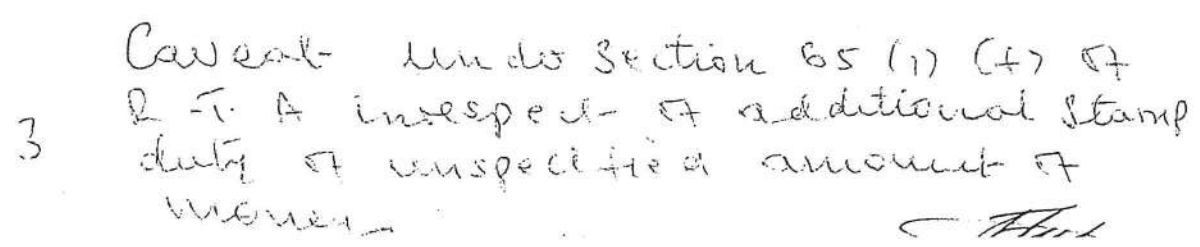 Caveat under Section 65 (1) (f) of
R.T.A inrespect of additional Stamp
3 duty of unspecified amount of
money.